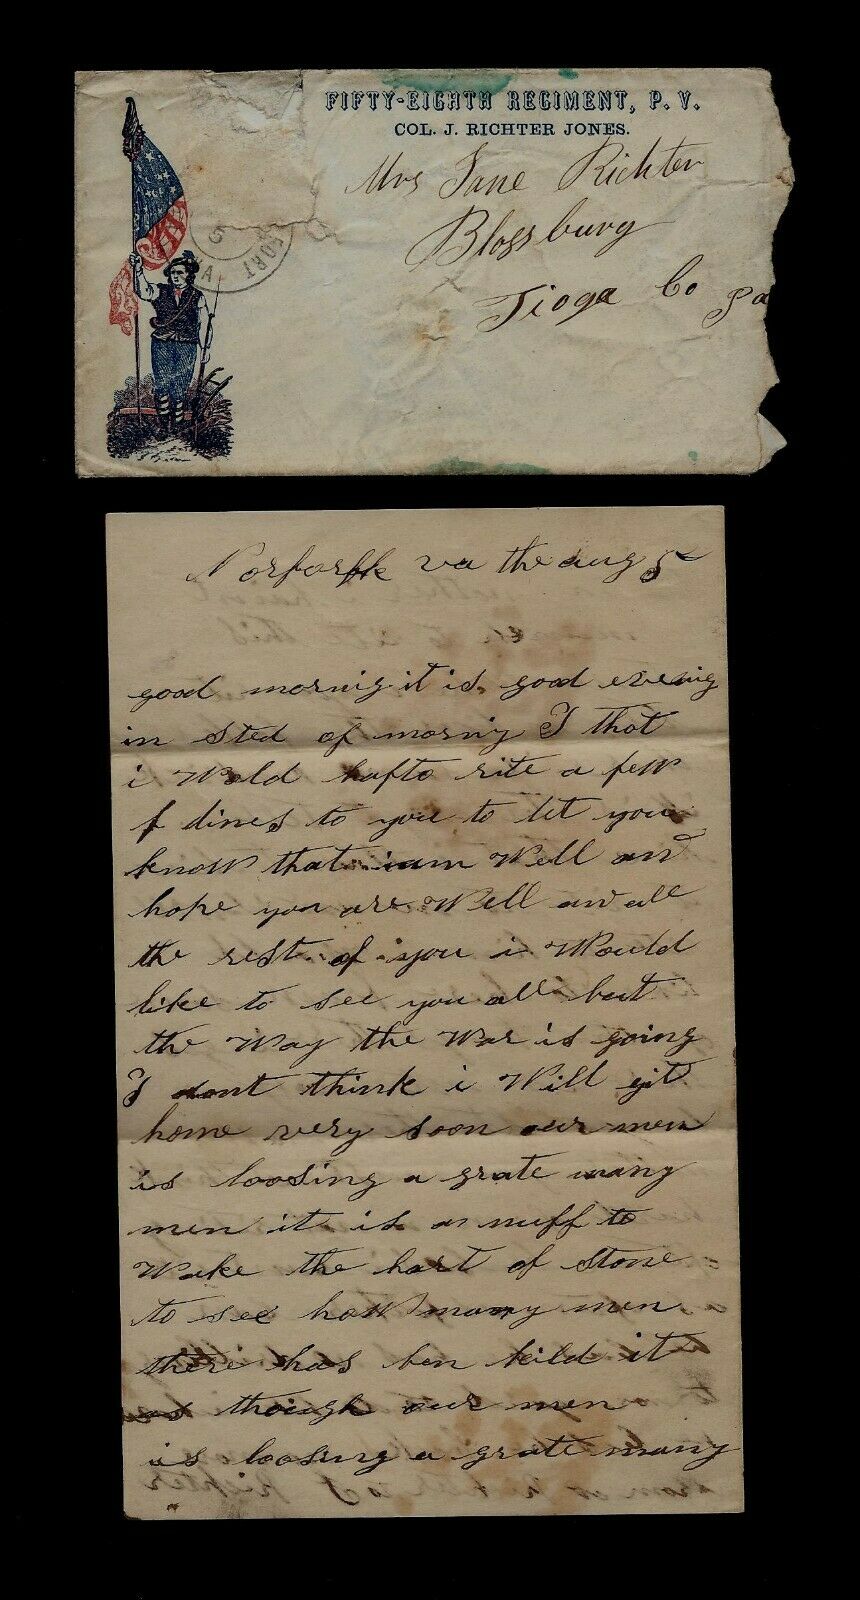 FIFTY-EIGHTH REGIMENT, P. V.
COL. J. RICHTER JONES.
Mrs Jane Richter
Blossburg
Tioga Co Pa
5
FORT
VA
Norforlk va the aug 5
good mornig it is good evening
in sted of morniy I that
i Wold hafto rite a few
f lines to you to let you
know that i am Well and
hope you are Well and all
the rest of you i Would
like to see you all but
the Way the War is going
I dont think i Will git
home very soon our men
is loosing a grate many
men it is a nuff to
Wake the hart of stone
to see how many men
there has ben kild it
as though our men
is loosing a grate many